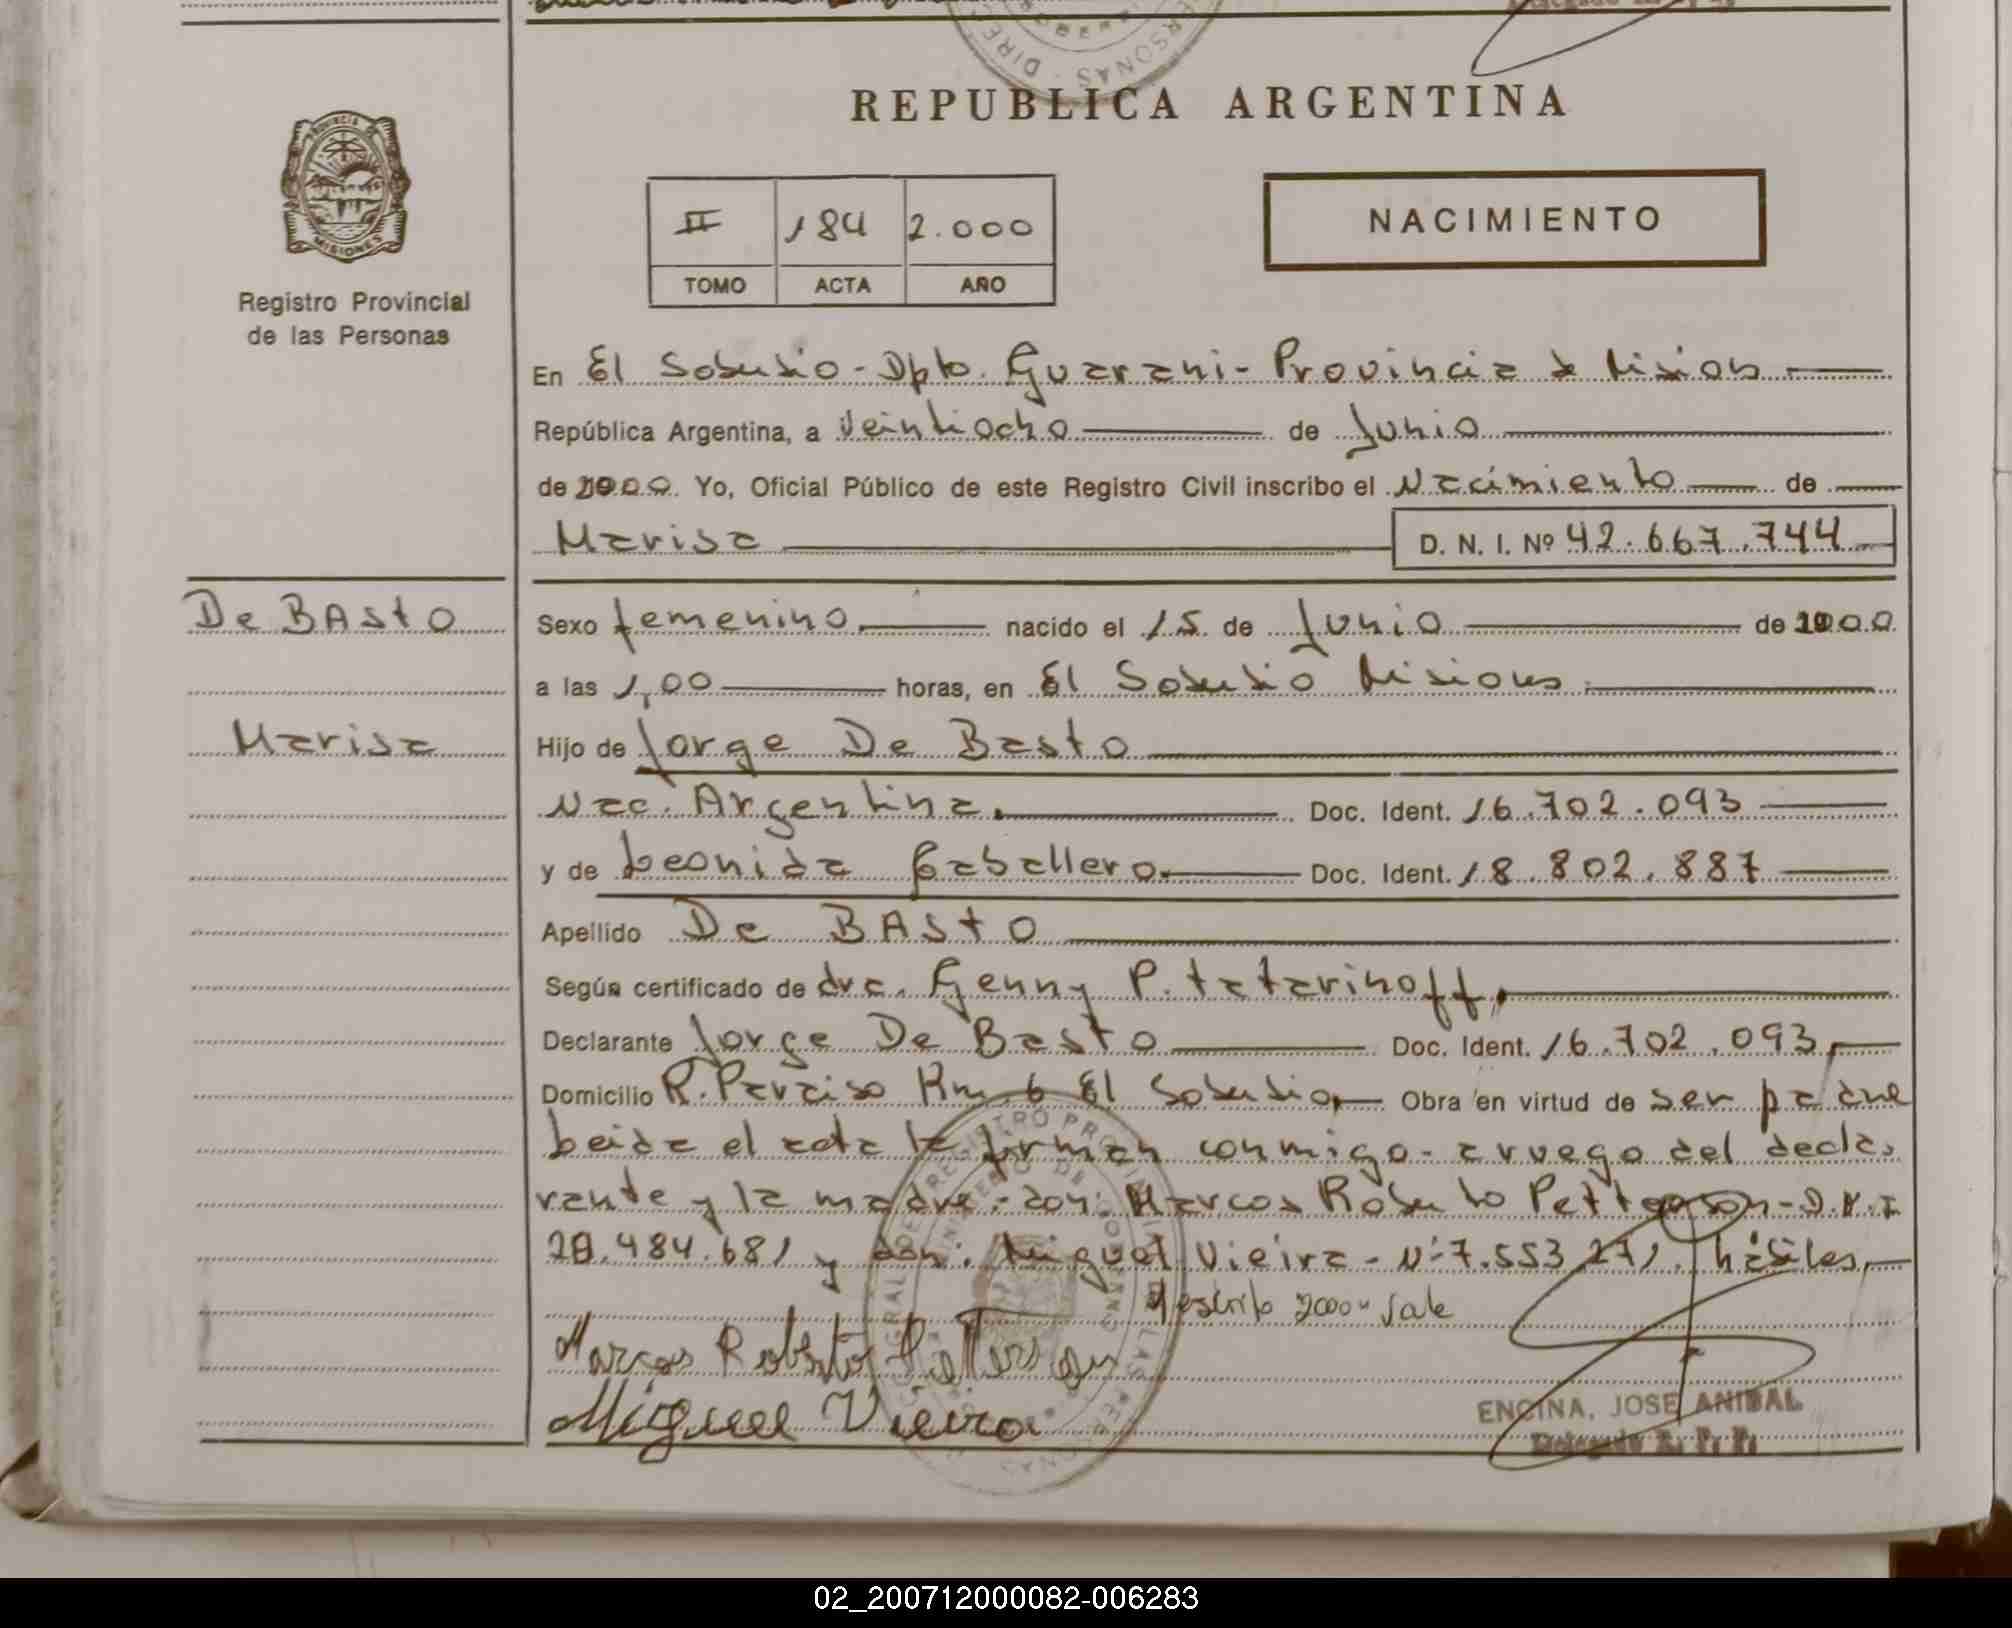 REPUBLICA ARGENTINA
PROVINCIA DE
MISIONES
Registro Provincial
de las Personas
II 184 2.000
TOMO ACTA AÑO
NACIMIENTO
En El Soberbio - Dpto. Guarani - Provincia de Misiones
República Argentina, a Veintiocho de Junio
de 2000. Yo, Oficial Público de este Registro Civil inscribo el Nacimiento de
Marisa D. N. I. Nº 42.667.744
De BAStO
Marisa
Sexo femenino nacido el 15 de Junio de 2000
a las 1,00 horas, en El Soberbio Misiones
Hijo de Jorge De Basto
Nac. Argentina. Doc. Ident. 16.702.093
y de Leonida Caballero. Doc. Ident. 18.802.887
Apellido De BAStO
Según certificado de dra. Genny P. tatarinoff,
Declarante Jorge De Basto Doc. Ident. 16.702.093,
Domicilio R. Paraiso Km 6 El Soberbio, Obra en virtud de ser padre
leida el acta la firman conmigo - a ruego del decla-
rante y la madre - don: Marcos Roberto Petterson - D.N.I
28.484.681 y don: Miguel Vieira - Nº 7.553.271, hábiles,
2000 Vale
Marcos Roberto Petterson
Miguel Vieira
ENCINA, JOSE ANIBAL
Delegado R. P. P.
02_200712000082-006283